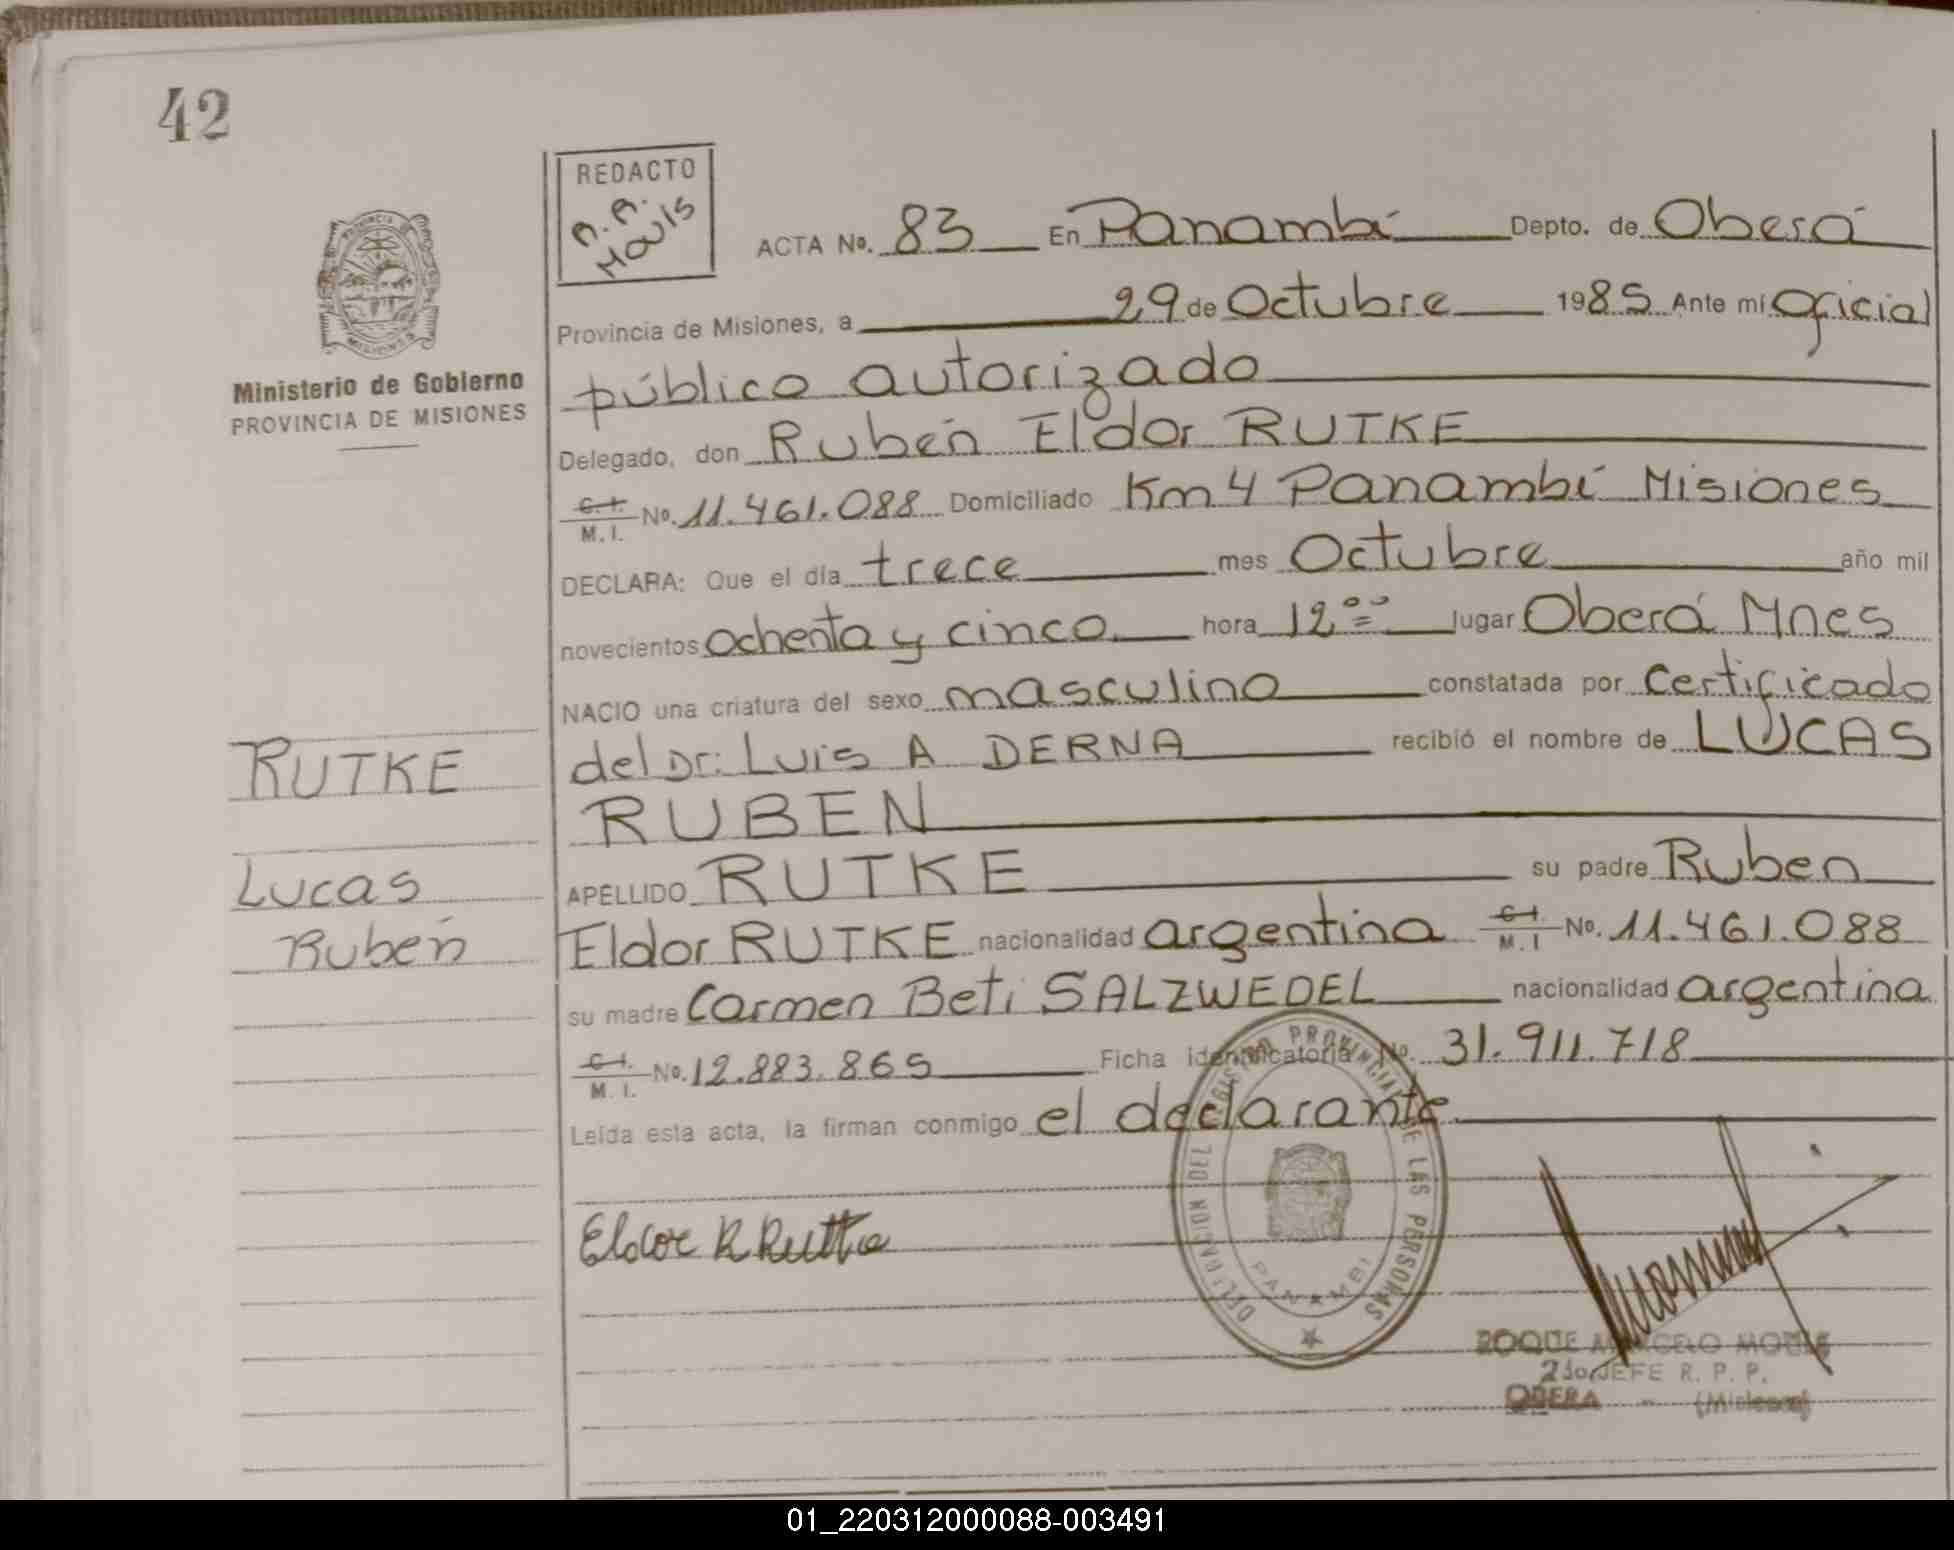 42
REDACTO
A. A.
MOUIS
PROVINCIA
MISIONES
Ministerio de Gobierno
PROVINCIA DE MISIONES
ACTA No. 83 En Panambí Depto. de Oberá
Provincia de Misiones, a 29 de Octubre 1985 Ante mi Oficial
público autorizado
Delegado, don Rubén Eldor RUTKE
C.I. M.I. No. 11.461.088 Domiciliado Km 4 Panambí Misiones
DECLARA: Que el día trece mes Octubre año mil
novecientos ochenta y cinco hora 12°° lugar Oberá Mnes
NACIO una criatura del sexo masculino constatada por Certificado
del Dr: Luis A DERNA recibió el nombre de LUCAS
RUBEN
APELLIDO RUTKE su padre Ruben
Eldor RUTKE nacionalidad argentina C.I. M.I No. 11.461.088
su madre Carmen Beti SALZWEDEL nacionalidad argentina
C.I. M.I. No. 12.883.865 Ficha identificatoria No. 31.911.718
Leída esta acta, la firman conmigo el declarante
RUTKE
Lucas
Rubén
Eldor R Rutke
DELEGACION DEL REGISTRO PROVINCIAL DE LAS PERSONAS
PANAMBI
ROQUE MARCELO
2do JEFE R. P. P.
OBERA - (Misiones)
01_220312000088-003491